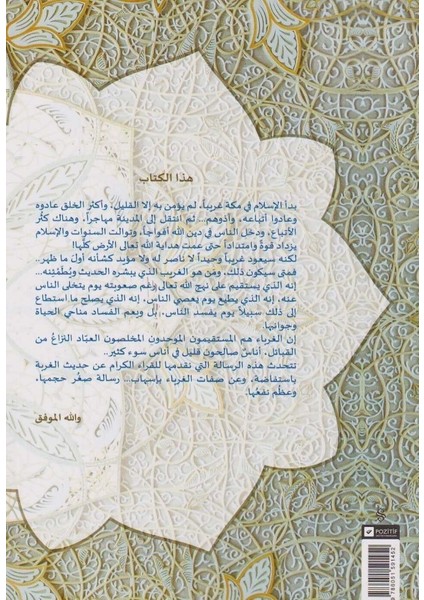 هذا الكتاب
بدأ الإسلام في مكة غريباً، لم يؤمن به إلا القليل، وأكثر الخلق عادوه
وعادوا أتباعه، وآذوهم... ثم انتقل إلى المدينة مهاجراً، وهناك كثُر
الأتباع، ودخل الناس في دين الله أفواجاً، وتوالت السنوات والإسلام
يزداد قوةً وامتداداً حتى عمت هداية الله تعالى الأرض كلَّها!
لكنه سيعود غريباً وحيداً لا ناصر له ولا مؤيد كشأنه أول ما ظهر..
فمتى سيكون ذلك، ومن هو الغريب الذي يبشره الحديث ويُطَمْئِنه...
إنه الذي يستقيم على نهج الله تعالى رغم صعوبته يوم يتخلى الناس
عنه، إنه الذي يطيع يوم يعصي الناس، إنه الذي يصلح ما استطاع
إلى ذلك سبيلاً يوم يفسد الناس، بل ويعم الفساد مناحي الحياة
وجوانبها.
إن الغرباء هم المستقيمون الموحدون المخلصون العبّاد النزاعُ من
القبائل، أناسٌ صالحون قليل في أناس سوء كثير..
تتحدث هذه الرسالة التي نقدمها للقراء الكرام عن حديث الغربة
باستفاضة، وعن صفات الغرباء بإسهاب... رسالة صغُر حجمها،
وعظُم نفعُها.
والله الموفق
POZİTİF